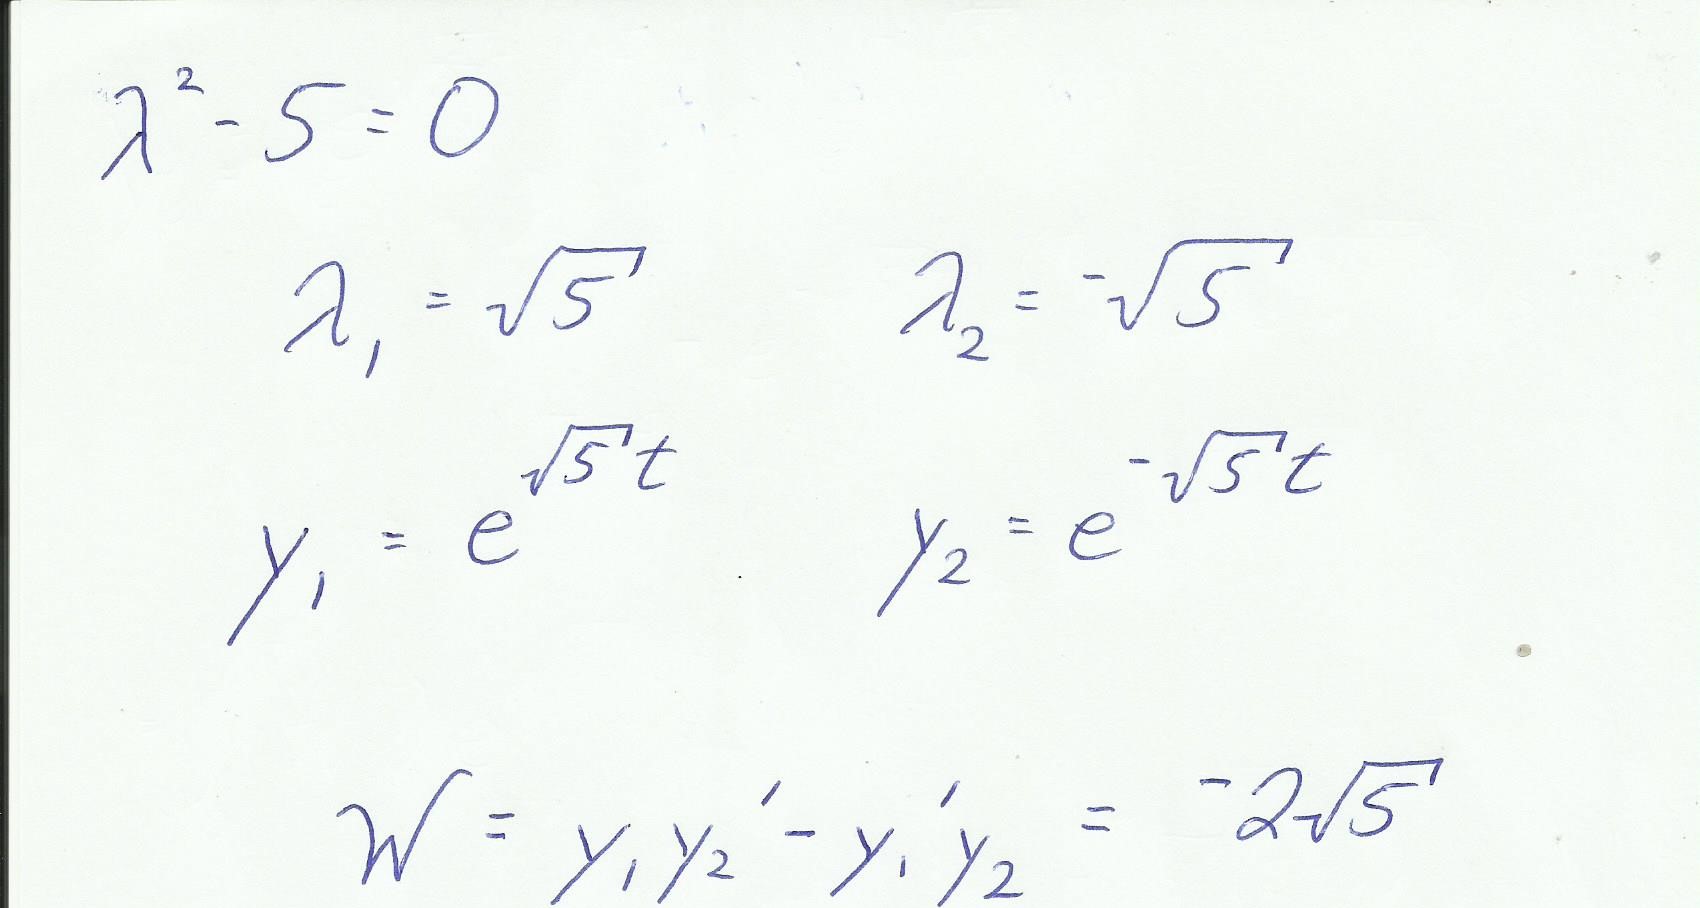 λ² - 5 = 0
λ₁ = √5 λ₂ = -√5
y₁ = e^(√5 t) y₂ = e^(-√5 t)
W = y₁y₂' - y₁'y₂ = -2√5